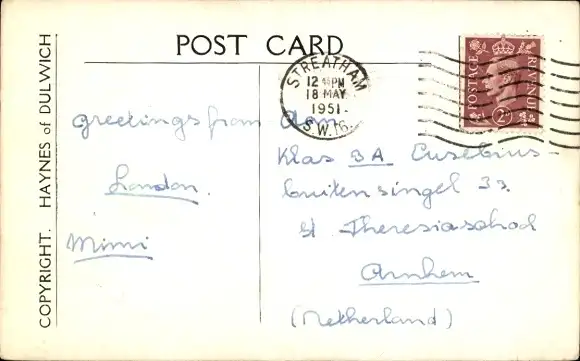 POST CARD
COPYRIGHT. HAYNES of DULWICH
STREATHAM
12 PM
18 MAY
1951
S.W.16.
POSTAGE REVENUE
2D
Greetings from
London.
Mimi
Aan
Klas 3A Eusebius
buitensingel 33.
St Theresiaschool
Arnhem
(Netherland)